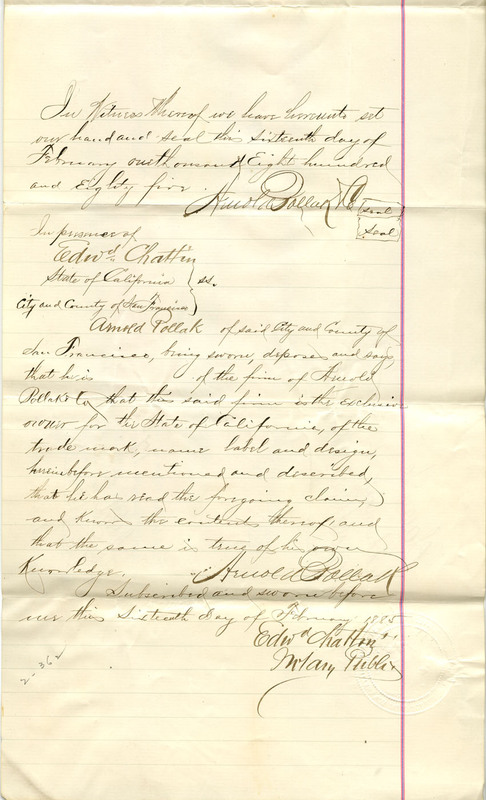 In Witness Whereof we have hereunto set
our hand and seal this sixteenth day of
February one thousand Eight hundred
and Eighty five.
Arnold Pollak & Co
seal
seal
In presence of
Edwd Chattin
State of California } ss.
City and County of San Francisco
Arnold Pollak of said City and County of
San Francisco, being sworn, deposes and says,
that he is of the firm of Arnold
Pollak & Co that this said firm is the exclusive
owner for the State of California, of the
trade mark, name label and design,
hereinbefore mentioned and described,
that he has read the foregoing claim,
and knows the contents thereof, and
that the same is true of his own
Knowledge. Arnold Pollak
Subscribed and sworn before
me this Sixteenth Day of February 1885
Edwd Chattin
Notary Public
2-362